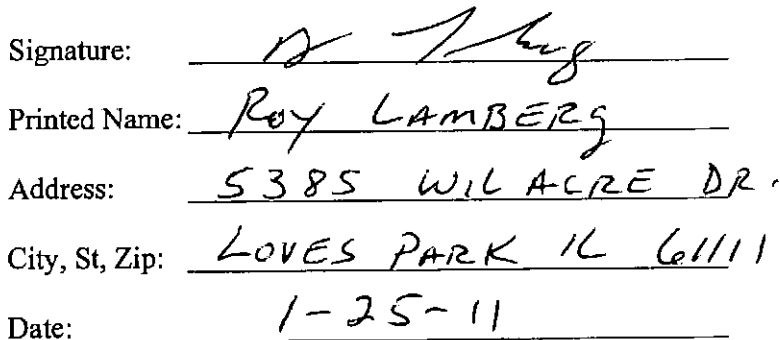 Signature:
Printed Name: ROY LAMBERG
Address: 5385 WILACRE DR.
City, St, Zip: LOVES PARK IL 61111
Date: 1-25-11